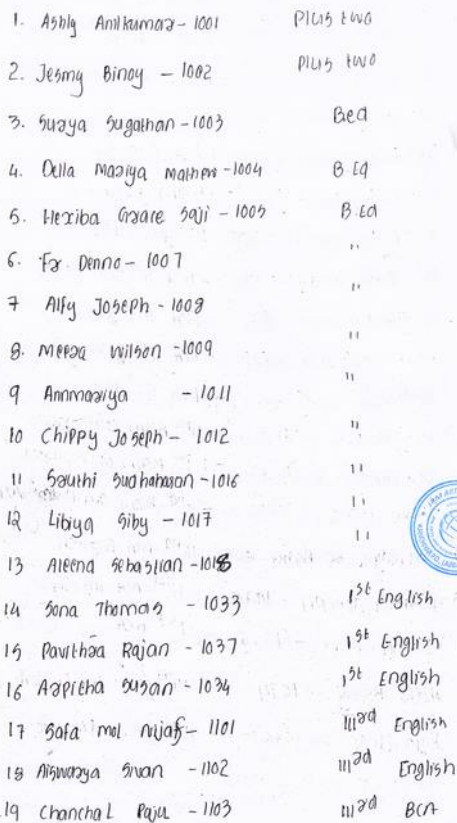 1. Ashly Anilkumar - 1001 Plus two
2. Jesmy Binoy - 1002 Plus two
3. Surya Sugathan - 1003 Bed
4. Della Mariya Mathew - 1004 B.Ed
5. Hexiba Graare Saji - 1005 B.Ed
6. Fr. Denno - 1007 "
7 Alfy Joseph - 1008 "
8. Meera Wilson - 1009 "
9 Annmariya - 1011 "
10 Chippy Joseph - 1012 "
11 Sruthi Sudhaharan - 1016 "
12 Libiya Siby - 1017 "
13 Aleena Sebastian - 1018 "
14 Sona Thomas - 1033 1st English
15 Pavithra Rajan - 1037 1st English
16 Arpitha Susan - 1034 1st English
17 Safa mol Nujaf - 1101 IIIrd English
18 Aiswarya Sivan - 1102 IIIrd English
19 Chanchal Raju - 1103 IIIrd BCA